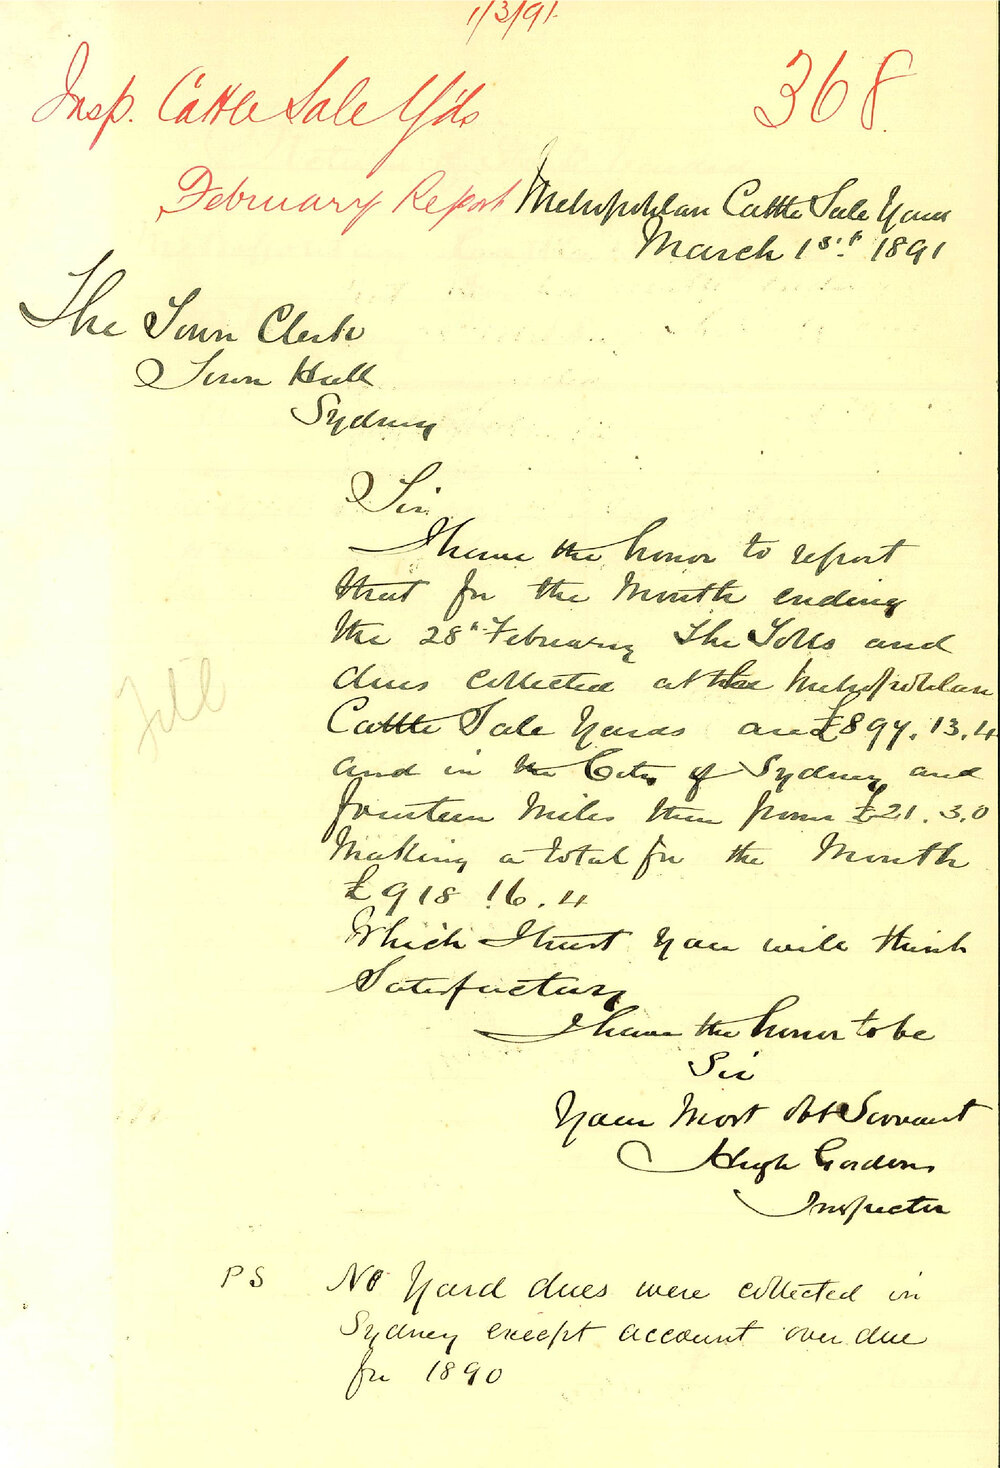 1/3/91.
Insp. Cattle Sale Yds
368
February Report
Metropolitan Cattle Sale Yards
March 1st. 1891
The Town Clerk
Town Hall
Sydney
Sir
I have the honor to report
that for the Month ending
the 28th February The Tolls and
dues collected at the Metropolitan
Cattle Sale Yards are £897.13.4
and in the City of Sydney and
fourteen Miles there from £21.3.0
Making a total for the Month
£918 16.4
Which I trust you will think
Satisfactory
I have the honor to be
Sir
Your Most Obt Servant
Hugh Gordon
Inspector
PS No Yard dues were collected in
Sydney except account over due
for 1890